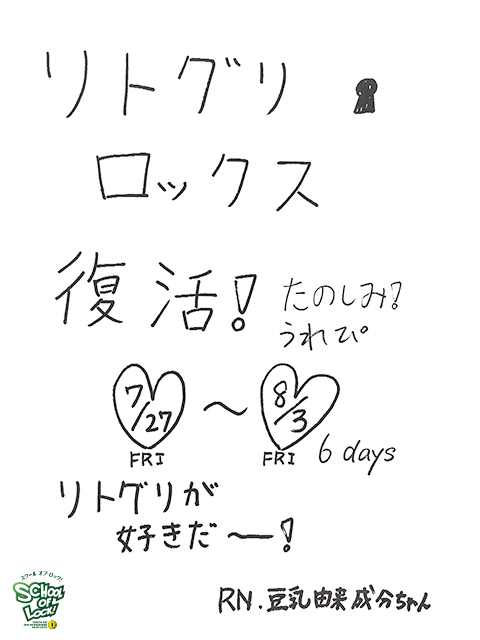 リトグリ
ロックス
復活!
たのしみ?
うれぴ。
7/27 〜 8/3
FRI FRI 6 days
リトグリが
好きだ〜!
スクール オブ ロック!
SCHOOL OF LOCK!
RN.豆乳由来成分ちゃん